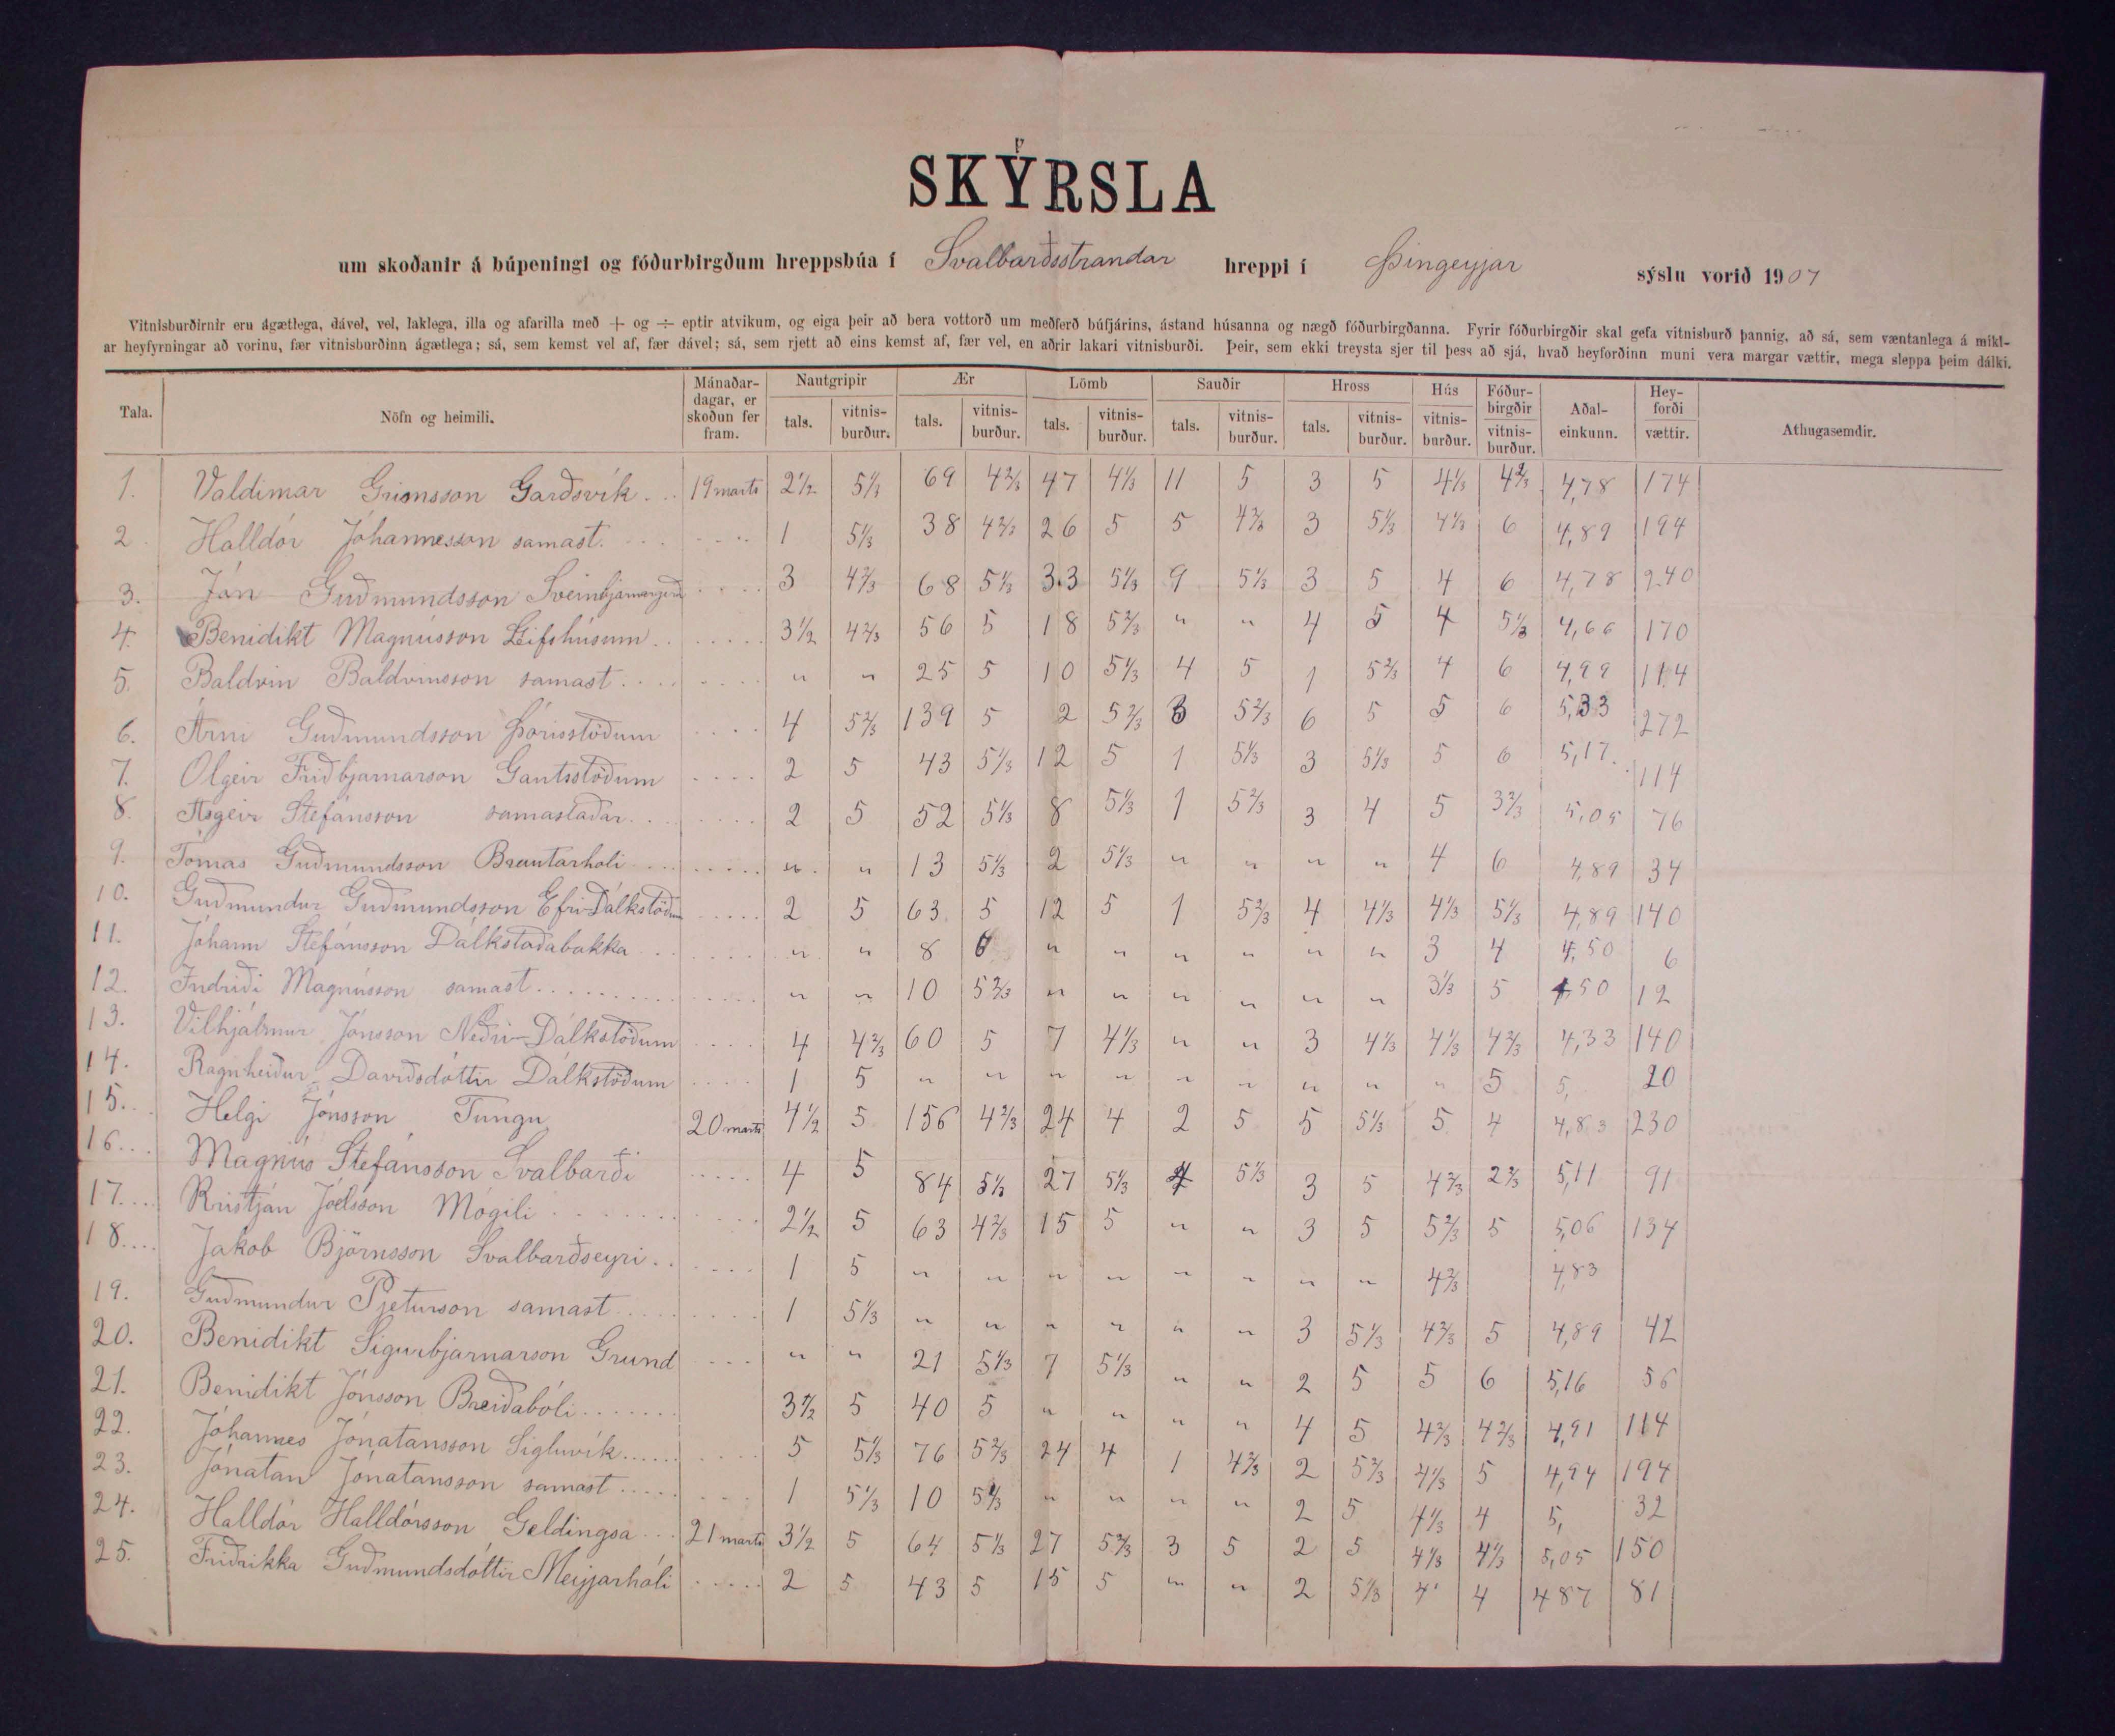 SKÝRSLA
um skoðanir á búpeningi og fóðurbirgðum hreppsbúa í Svalbarðsstrandar hreppi í Þingeyjar sýslu vorið 1907
Vitnisburðirnir eru ágætlega, dável, vel, laklega, illa og afarilla með + og ÷ eptir atvikum, og eiga þeir að bera vottorð um meðferð búfjárins, ástand húsanna og nægð fóðurbirgðanna. Fyrir fóðurbirgðir skal gefa vitnisburð þannig, að sá, sem væntanlega á mikl-
ar heyfyrningar að vorinu, fær vitnisburðinn ágætlega; sá, sem kemst vel af, fær dável; sá, sem rjett að eins kemst af, fær vel, en aðrir lakari vitnisburði. Þeir, sem ekki treysta sjer til þess að sjá, hvað heyforðinn muni vera margar vættir, mega sleppa þeim dálki.
Tala. Nöfn og heimili. Mánaðar-dagar, er skoðun fer fram. Nautgripir tals. vitnis-burður. Ær tals. vitnis-burður. Lömb tals. vitnis-burður. Sauðir tals. vitnis-burður. Hross tals. vitnis-burður. Hús vitnis-burður. Fóður-birgðir vitnis-burður. Aðal-einkunn. Hey-forði vættir. Athugasemdir.
1. Valdimar Grímsson Garðsvík... 19 marts 2 1/2 5 1/3 69 4 2/3 47 4 1/3 11 5 3 5 4 1/3 4 2/3 4,78 174
2. Halldór Jóhannesson samast. .... 1 5 1/3 38 4 2/3 26 5 5 4 2/3 3 5 1/3 4 1/3 6 4,89 194
3. Ján Guðmundsson Sveinbjarnargerði .... 3 4 2/3 68 5 1/3 33 5 1/3 9 5 1/3 3 5 4 6 4,78 240
4. Benidikt Magnússon Leifshúsum ...... 3 1/2 4 2/3 56 5 18 5 2/3 " " 4 5 4 5 1/3 4,66 170
5. Baldvin Baldvinsson samast ....... " " 25 5 10 5 1/3 4 5 1 5 2/3 4 6 4,99 114
6. Árni Guðmundsson Þórisstöðum .... 4 5 2/3 139 5 2 5 2/3 3 5 2/3 6 5 5 6 5,33 272
7. Olgeir Friðbjarnarson Gautsstöðum .... 2 5 43 5 1/3 12 5 1 5 1/3 3 5 1/3 5 6 5,17 114
8. Ásgeir Stefánsson samastaðar ....... 2 5 52 5 1/3 8 5 1/3 1 5 2/3 3 4 5 3 2/3 5,05 76
9. Tómas Guðmundsson Brautarholi ...... " " 13 5 1/3 2 5 1/3 " " " " 4 6 4,89 34
10. Guðmundur Guðmundsson Efri-Dálkstöðum ..... 2 5 63 5 12 5 1 5 2/3 4 4 1/3 4 1/3 5 1/3 4,89 140
11. Jóhann Stefánsson Dálkstaðabakka ....... " " 8 6 " " " " " " 3 4 4,50 6
12. Indriði Magnússon samast .......... " " 10 5 2/3 " " " " " " 3 1/3 5 4,50 12
13. Vilhjálmur Jónsson Neðri-Dálkstöðum .... 4 4 2/3 60 5 7 4 1/3 " " 3 4 1/3 4 1/3 4 2/3 4,33 140
14. Ragnheiður Davíðsdóttir Dálkstöðum .... 1 5 " " " " " " " " " 5 5, 20
15. Helgi Jónsson Tungu 20 marts 4 1/2 5 156 4 2/3 24 4 2 5 5 5 1/3 5 4 4,83 230
16... Magnús Stefánsson Svalbarði ..... 4 5 84 5 1/3 27 5 1/3 4 5 1/3 3 5 4 2/3 2 2/3 5,11 91
17... Kristján Jóelsson Mógili .......... 2 1/2 5 63 4 2/3 15 5 " " 3 5 5 2/3 5 5,06 134
18.... Jakob Björnsson Svalbarðseyri ...... 1 5 " " " " " " " " 4 2/3 4,83
19. Guðmundur Pjeturson samast ........ 1 5 1/3 " " " " " " 3 5 1/3 4 2/3 5 4,89 42
20. Benidikt Sigurbjarnarson Grund .... " " 21 5 1/3 7 5 1/3 " " 2 5 5 6 5,16 56
21. Benidikt Jónsson Breiðabóli ....... 3 1/2 5 40 5 " " " " 4 5 4 2/3 4 2/3 4,91 114
22. Jóhannes Jónatansson Sigluvík .......... 5 5 1/3 76 5 2/3 24 4 1 4 2/3 2 5 2/3 4 1/3 5 4,94 194
23. Jónatan Jónatansson samast ........ 1 5 1/3 10 5 1/3 " " " " 2 5 4 1/3 4 5, 32
24. Halldór Halldórsson Geldingsa... 21 marts 3 1/2 5 64 5 1/3 27 5 2/3 3 5 2 5 4 1/3 4 1/3 5,05 150
25. Friðrikka Guðmundsdóttir Meyjarhóli ..... 2 5 43 5 15 5 " " 2 5 1/3 4 4 4 87 81